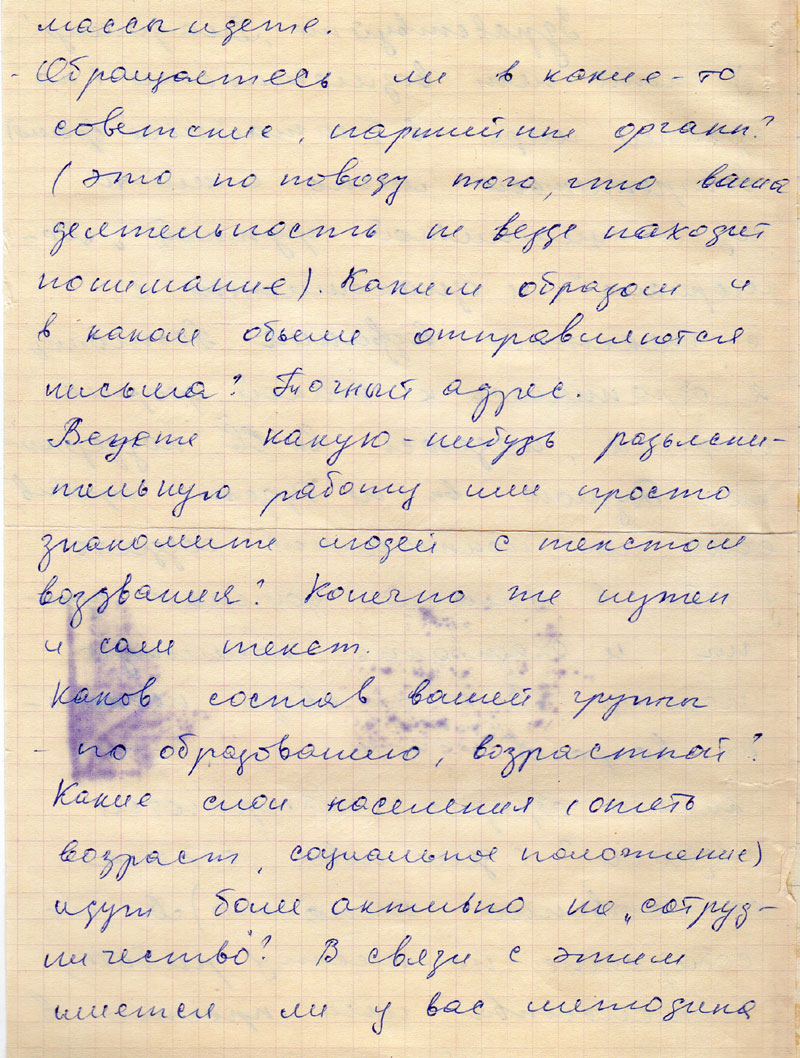 массы идете.
- Обращаетесь ли в какие-то
советские, партийные органы?
(это по поводу того, что ваша
деятельность не везде находит
понимание). Каким образом и
в каком объеме отправляются
письма? Точный адрес.
Ведете какую-нибудь разъясни-
тельную работу или просто
знакомите людей с текстом
воззвания? Конечно же нужен
и сам текст.
Каков состав вашей группы
- по образованию, возрастной?
Какие слои населения (опять
возраст, социальное положение)
идут более активно на „сотруд-
ничество"? В связи с этим
имеется ли у вас методика